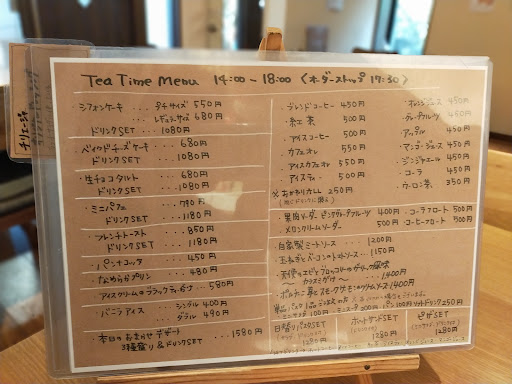 Tea Time Menu 14:00〜18:00 〈オーダーストップ 17:30〉
シフォンケーキ ・・・ プチサイズ 550円
レギュラーサイズ 680円
ドリンクSET ・・・ 1080円
ベイクドチーズケーキ ・・・ 680円
ドリンクSET ・・・ 1080円
生チョコタルト ・・・ 680円
ドリンクSET ・・・ 1080円
ミニパフェ ・・・ 790円
ドリンクSET ・・・ 1180円
フレンチトースト ・・・ 850円
ドリンクSET ・・・ 1180円
パンナコッタ ・・・ 450円
なめらかプリン ・・・ 480円
アイスクリームの ・・・ 580円
バニラアイス ・・・ シングル 400円
ダブル 490円
本日のおまかせデザート ・・・ 1580円
3種盛り&ドリンクSET
・ブレンドコーヒー 450円
・紅茶 500円
・アイスコーヒー 500円
・カフェオレ 550円
・アイスカフェオレ 550円
・アイスティー 500円
※おかわりALL 250円
・オレンジジュース 450円
・グレープフルーツ 450円
・アップル 450円
・マンゴージュース 450円
・ジンジャエール 450円
・コーラ 450円
・ウーロン茶 350円
・果肉ソーダー ピンクグレープフルーツ 400円
・メロンクリームソーダー 500円
・コーラフロート 500円
・コーヒーフロート 500円
・自家製ミートソース ・・・ 1200円
・玉ねぎとベーコンのトマトソース ・・・ 1150円
・天使のエビとブロッコリーのガーリック風味
〜カラスミがけ〜 ・・・ 1400円
・ポルチーニ茸とスモークサーモンのクリームソース ・・・ 1400円
・ミニサラダ 100円 ・ミニスープ 200円 ・パン 100円 ソフトドリンク 250円
日替りパスタSET
1280円
ホットサンドSET
1280円
ピザSET
1280円